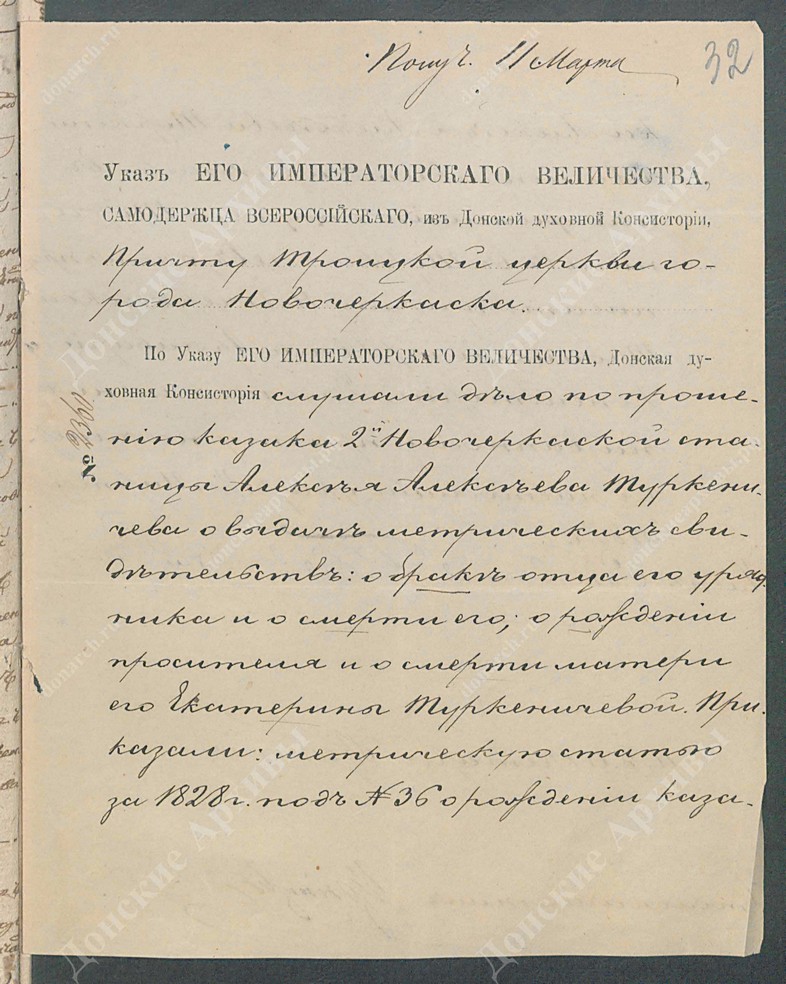 Получ. 11 Марта
32
Указъ ЕГО ИМПЕРАТОРСКАГО ВЕЛИЧЕСТВА,
САМОДЕРЖЦА ВСЕРОССІЙСКАГО, изъ Донской духовной Консисторіи,
Причту Троицкой церкви го-
рода Новочеркаска.
По Указу ЕГО ИМПЕРАТОРСКАГО ВЕЛИЧЕСТВА, Донская ду-
ховная Консисторія слушали дѣло по проше-
№ 2360
нію казака 2й Новочеркаской ста-
ницы Алексѣя Алексѣева Туркени-
чева о выдачѣ метрическихъ сви-
дѣтельствъ: о бракѣ отца его уряд-
ника и о смерти его; о рожденіи
просителя и о смерти матери
его Екатерины Туркеничевой. При-
казали: метрическую статью
за 1828 г. подъ № 36 о рожденіи каза-
Донские Архивы
donarch.ru